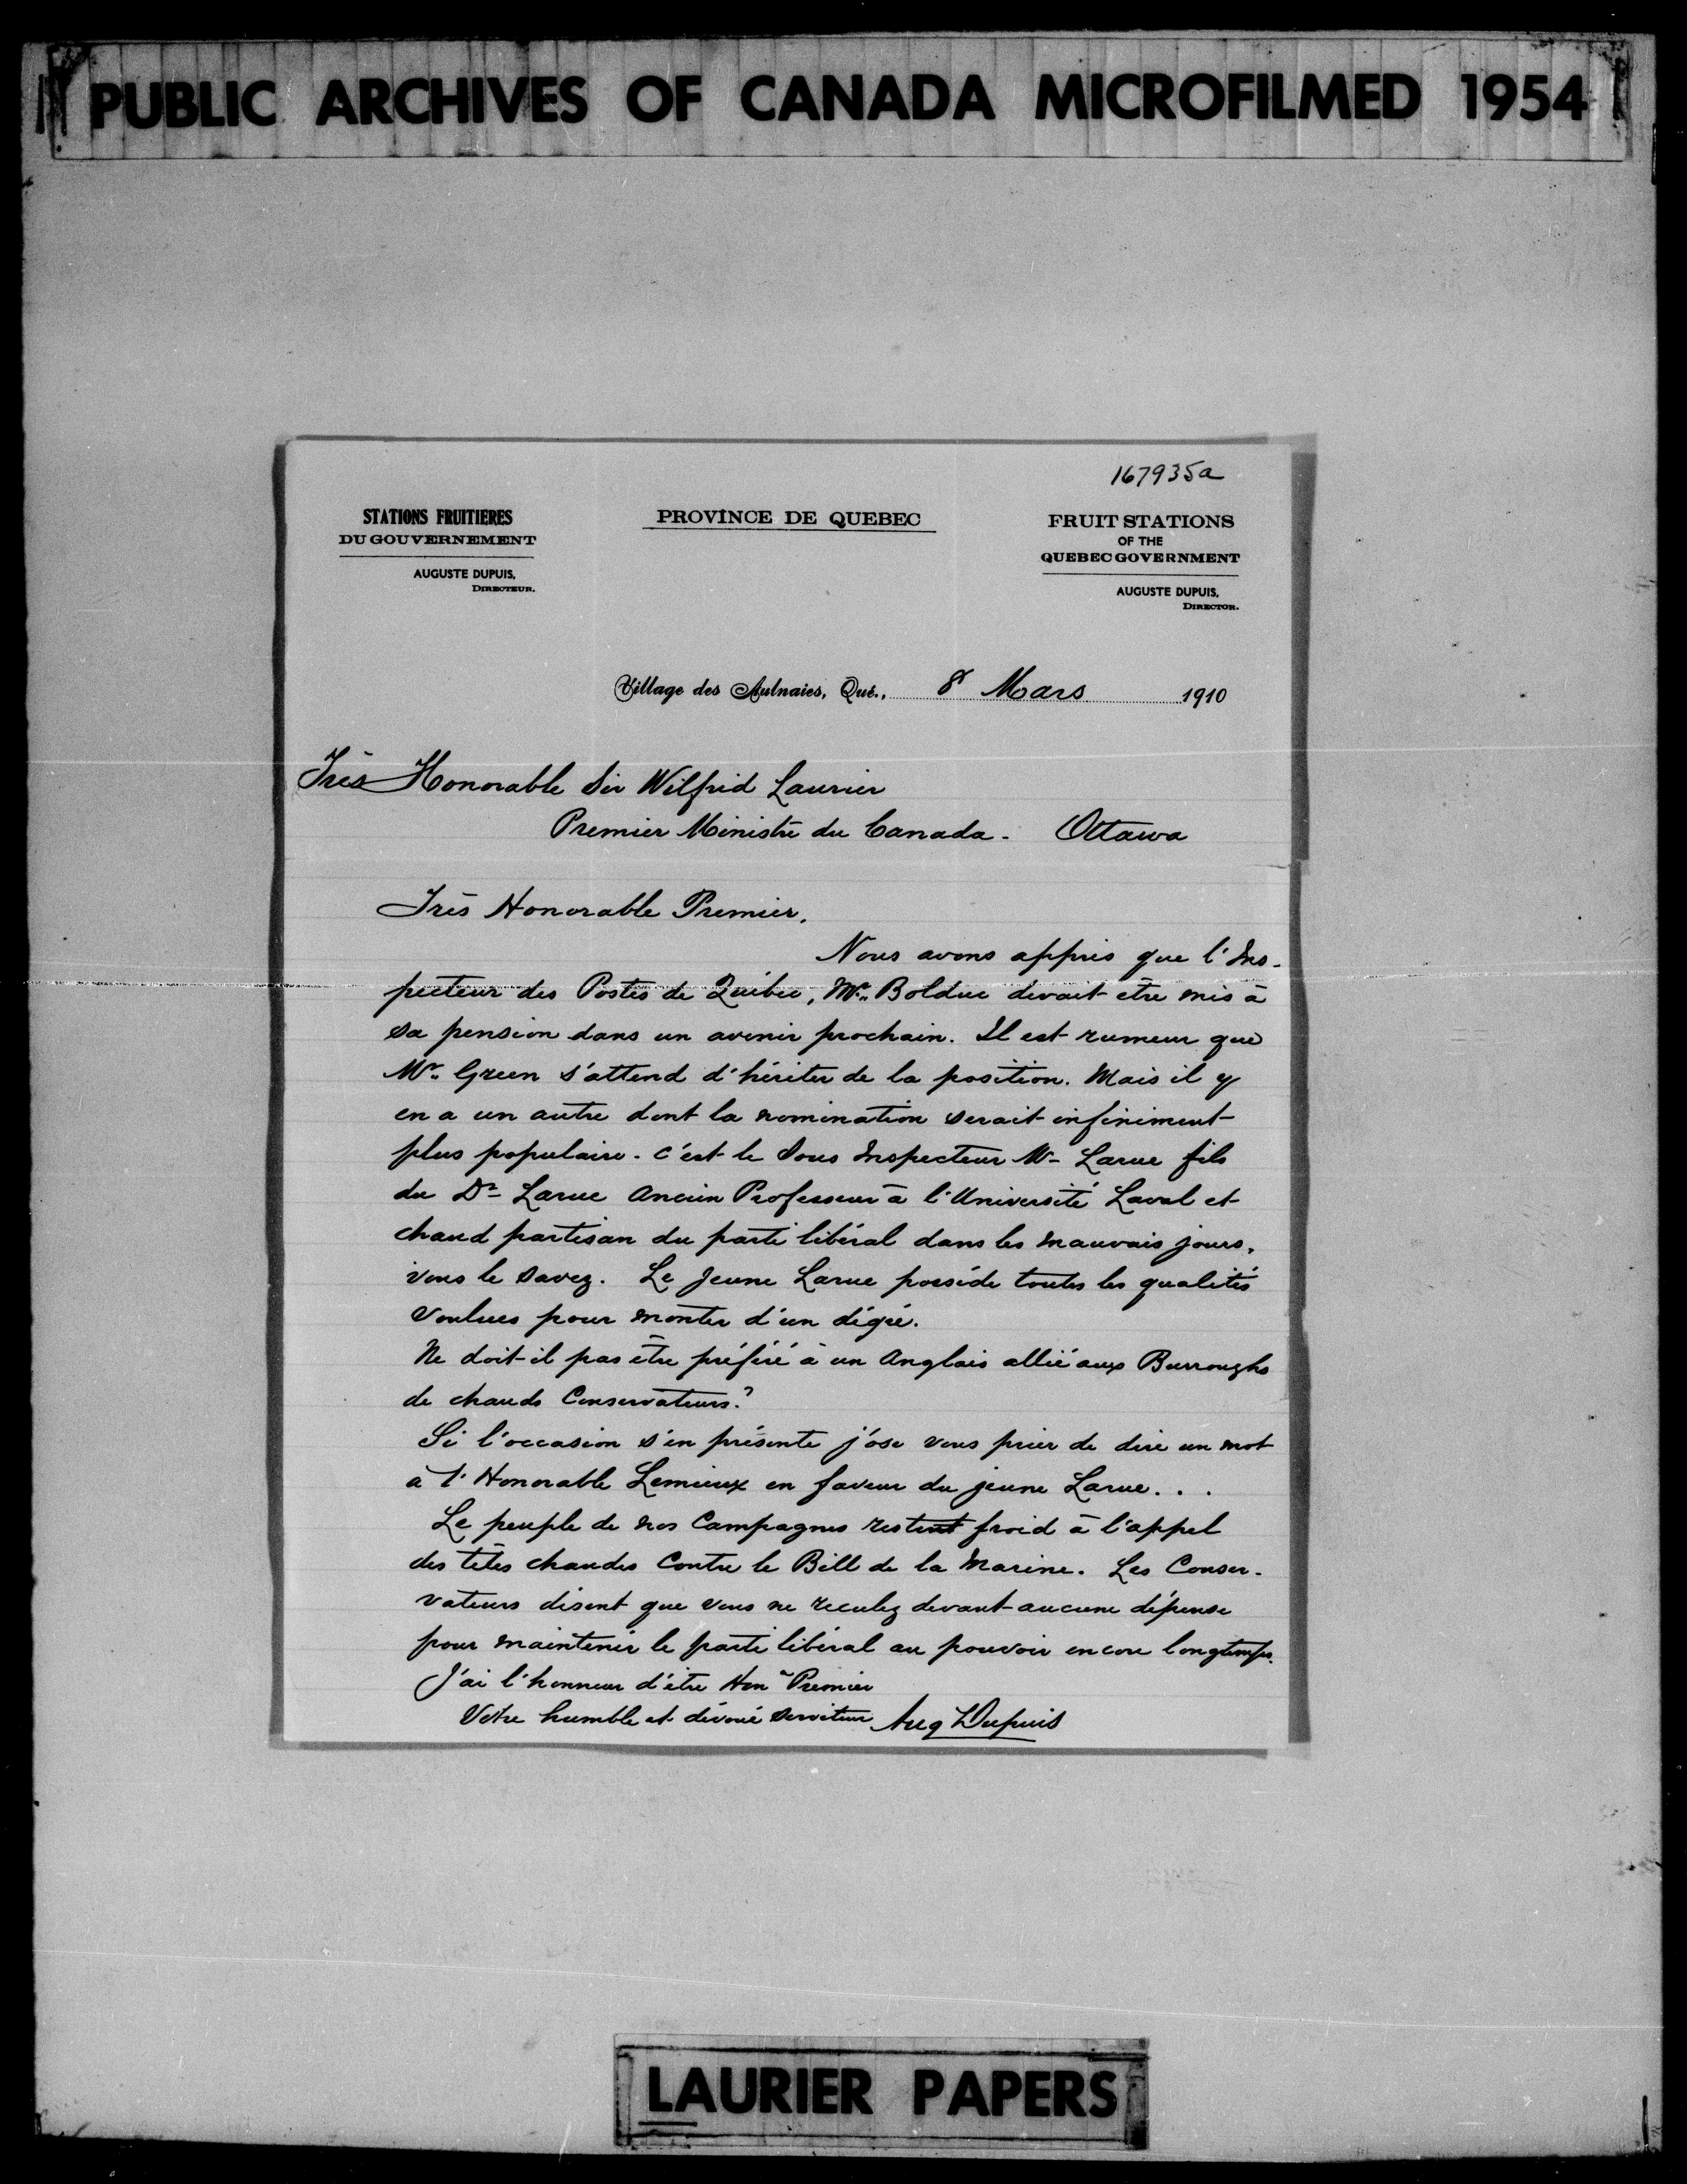 PUBLIC ARCHIVES OF CANADA MICROFILMED 1954
167935a
STATIONS FRUITIERES
DU GOUVERNEMENT
AUGUSTE DUPUIS,
DIRECTEUR.
PROVINCE DE QUEBEC
FRUIT STATIONS
OF THE
QUEBEC GOVERNMENT
AUGUSTE DUPUIS,
DIRECTOR.
Village des Aulnaies, Qué., 8 Mars 1910
Très Honorable Sir Wilfrid Laurier
Premier Ministre du Canada. Ottawa
Très Honorable Premier,
Nous avons appris que l'Ins-
pecteur des Postes de Québec, Mr. Bolduc devait être mis à
sa pension dans un avenir prochain. Il est rumeur que
Mr. Green s'attend d'hériter de la position. Mais il y
en a un autre dont la nomination serait infiniment
plus populaire. c'est le Sous Inspecteur Mr Larue fils
du Dr Larue Ancien Professeur à l'Université Laval et
chaud partisan du parti libéral dans les mauvais jours,
vous le savez. Le Jeune Larue possède toutes les qualités
voulues pour monter d'un dégré.
Ne doit-il pas être préféré à un Anglais allié aux Burroughs
de chauds Conservateurs?
Si l'occasion s'en présente j'ose vous prier de dire un mot
à l'Honorable Lemieux en faveur du jeune Larue...
Le peuple de nos Campagnes restent froid à l'appel
des têtes chaudes Contre le Bill de la Marine. Les Conser-
vateurs disent que vous ne reculez devant aucune dépense
pour maintenir le parti libéral au pouvoir encore longtemps.
J'ai l'honneur d'être Hon Premier
Votre humble et dévoué serviteur Aug Dupuis
LAURIER PAPERS